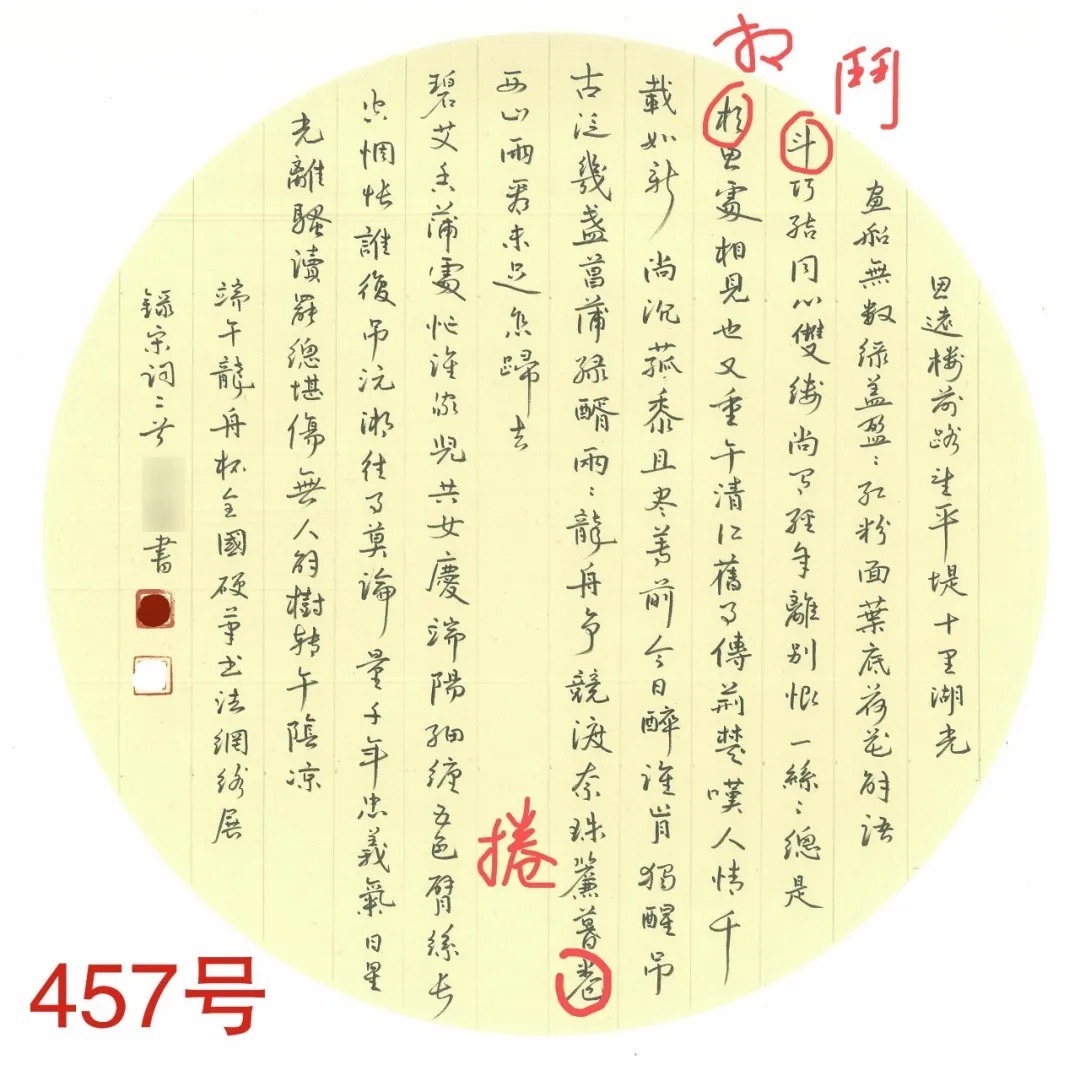 思遠樓前路望平堤十里湖光
画船無数綠盖盈〻紅粉面葉底荷花解語
斗巧結同心雙縷尚有經年離別恨一絲〻總是
相思處相見也又重午清江舊事傳荊楚嘆人情千
載如新尚沉菰黍且盡尊前今日醉誰肯獨醒吊
古泛幾盞菖蒲綠醑兩〻龍舟爭競渡奈珠簾暮卷
西山雨看未足怎歸去
碧艾香蒲處忙誰家兒共女慶端陽細纏五色臂絲長
空惆悵誰復吊沅湘往事莫論 量千年忠義氣日星
光離騷讀罷總堪傷無人解樹轉午陰凉
端午龍舟杯全國硬筆书法網絡展
録宋詞二首 書
鬥
相
捲
457号